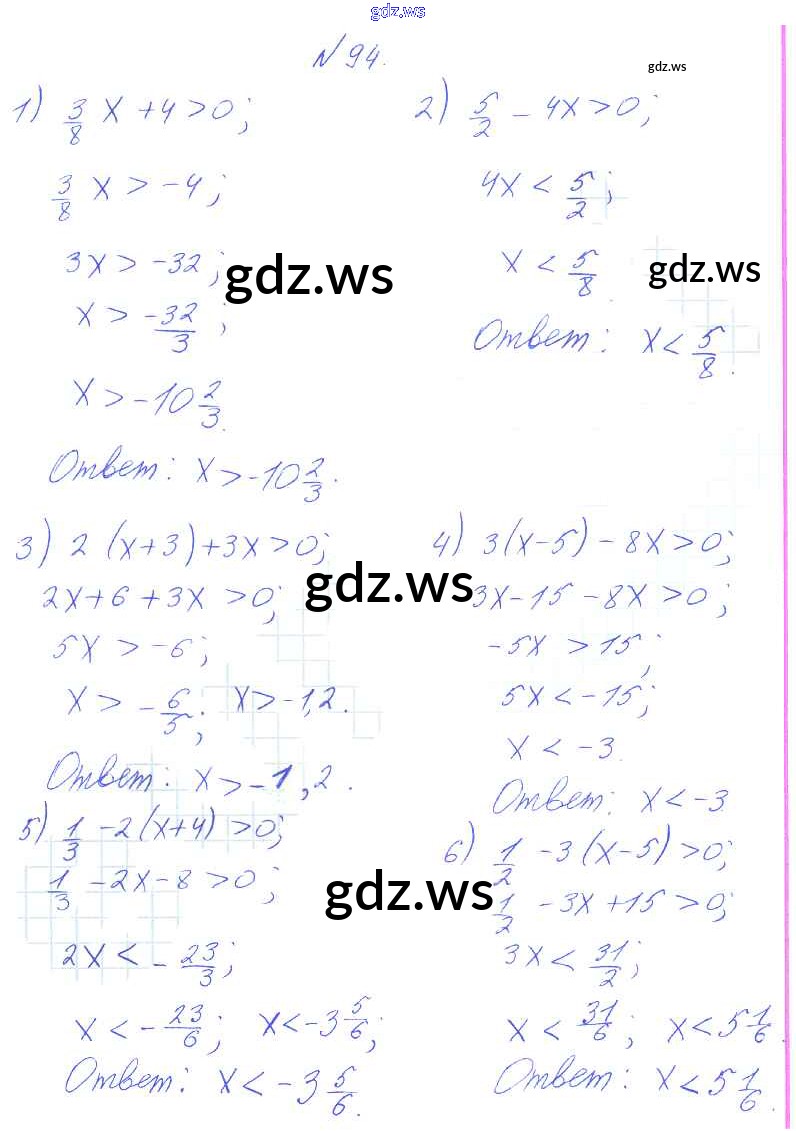 gdz.ws
N 94.
gdz.ws
1) 3/8 x + 4 > 0;
3/8 x > -4;
3x > -32;
gdz.ws
x > -32/3;
x > -10 2/3.
Ответ: x > -10 2/3.
2) 5/2 - 4x > 0;
4x < 5/2;
x < 5/8.
gdz.ws
Ответ: x < 5/8.
3) 2(x+3)+3x>0;
2x+6+3x>0;
gdz.ws
5x > -6;
x > -6/5; x > -1,2.
Ответ: x > -1,2.
4) 3(x-5) - 8x > 0;
3x-15-8x>0;
-5x > 15;
5x < -15;
x < -3.
Ответ: x < -3.
5) 1/3 - 2(x+4) > 0;
1/3 - 2x - 8 > 0;
gdz.ws
2x < -23/3;
x < -23/6; x < -3 5/6;
Ответ: x < -3 5/6.
6) 1/2 - 3(x-5) > 0;
1/2 - 3x + 15 > 0;
3x < 31/2;
x < 31/6; x < 5 1/6.
Ответ: x < 5 1/6.